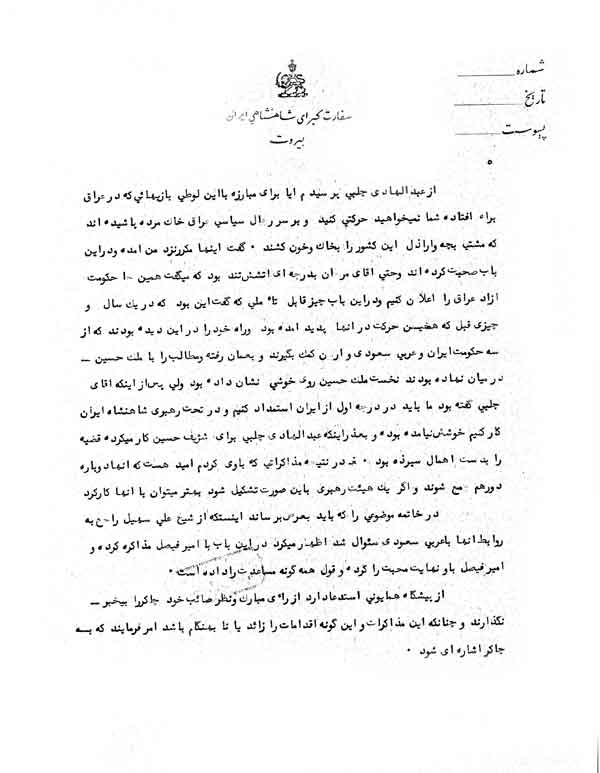 شماره
تاریخ
پیوست
سفارت کبرای شاهنشاهی ایران
بیروت
از عبدالهادی چلبی پرسیدم ایا برای مبارزه با این لوطی بازیهائی که در عراق
براه افتاده شما نمیخواهید حرکتی کنید و بر سر رجال سیاسی عراق خاك مرده پاشیده اند
که مشتی بچه و اراذل این کشور را بخاك وخون کشند ۰ گفت اینها مکرر نزد من امده ودراین
باب صحبت کرده اند وحتی اقای مرجان بدرجه ای اتشش تند بود که میگفت همین جا حکومت
ازاد عراق را اعلان کنیم ودراین باب چیز قابل تأملی که گفت این بود که در یك سال و
چیزی قبل که همچنین حرکت در انها پدید امده بود وراه خود را در این دیده بودند که از
سه حکومت ایران و عربی سعودی و اردن کمك بگیرند و بعمان رفته ومطالب را با ملك حسین ــ
در میان نهاده بودند نخست ملك حسین روی خوشی نشان داده بود ولی پس از اینکه اقای
چلبی گفته بود ما باید در درجه اول از ایران استمداد کنیم و در تحت رهبری شاهنشاه ایران
کار کنیم خوشش نیامده بود و بعذر اینکه عبدالهادی چلبی برای شریف حسین کار میکرده قضیه
را بدست اهمال سپرده بود ۰ در نتیجه مذاکراتی که باوی کردم امید هست که انها دوباره
دورهم جمع شوند و اگر یك هیئت رهبری باین صورت تشکیل شود بهتر میتوان با انها کار کرد
در خاتمه موضوعی را که باید بعرض برساند اینستکه از شیخ علی سهیل راجع به
روابط انها با عربی سعودی سئوال شد اظهار میکرد در این باب با امیر فیصل مذاکره کرده و
امیر فیصل باو نهایت محبت را کرده و قول همه گونه مساعدت را داده است ۰
از پیشگاه همایونی استدعا دارد از رای مبارك ونظر صائب خود چاکر را بیخبر ــ
نگذارند و چنانکه این مذاکرات و این گونه اقدامات را زائد یا نا بهنگام باشد امر فرمایند که به
چاکر اشاره ای شود ۰